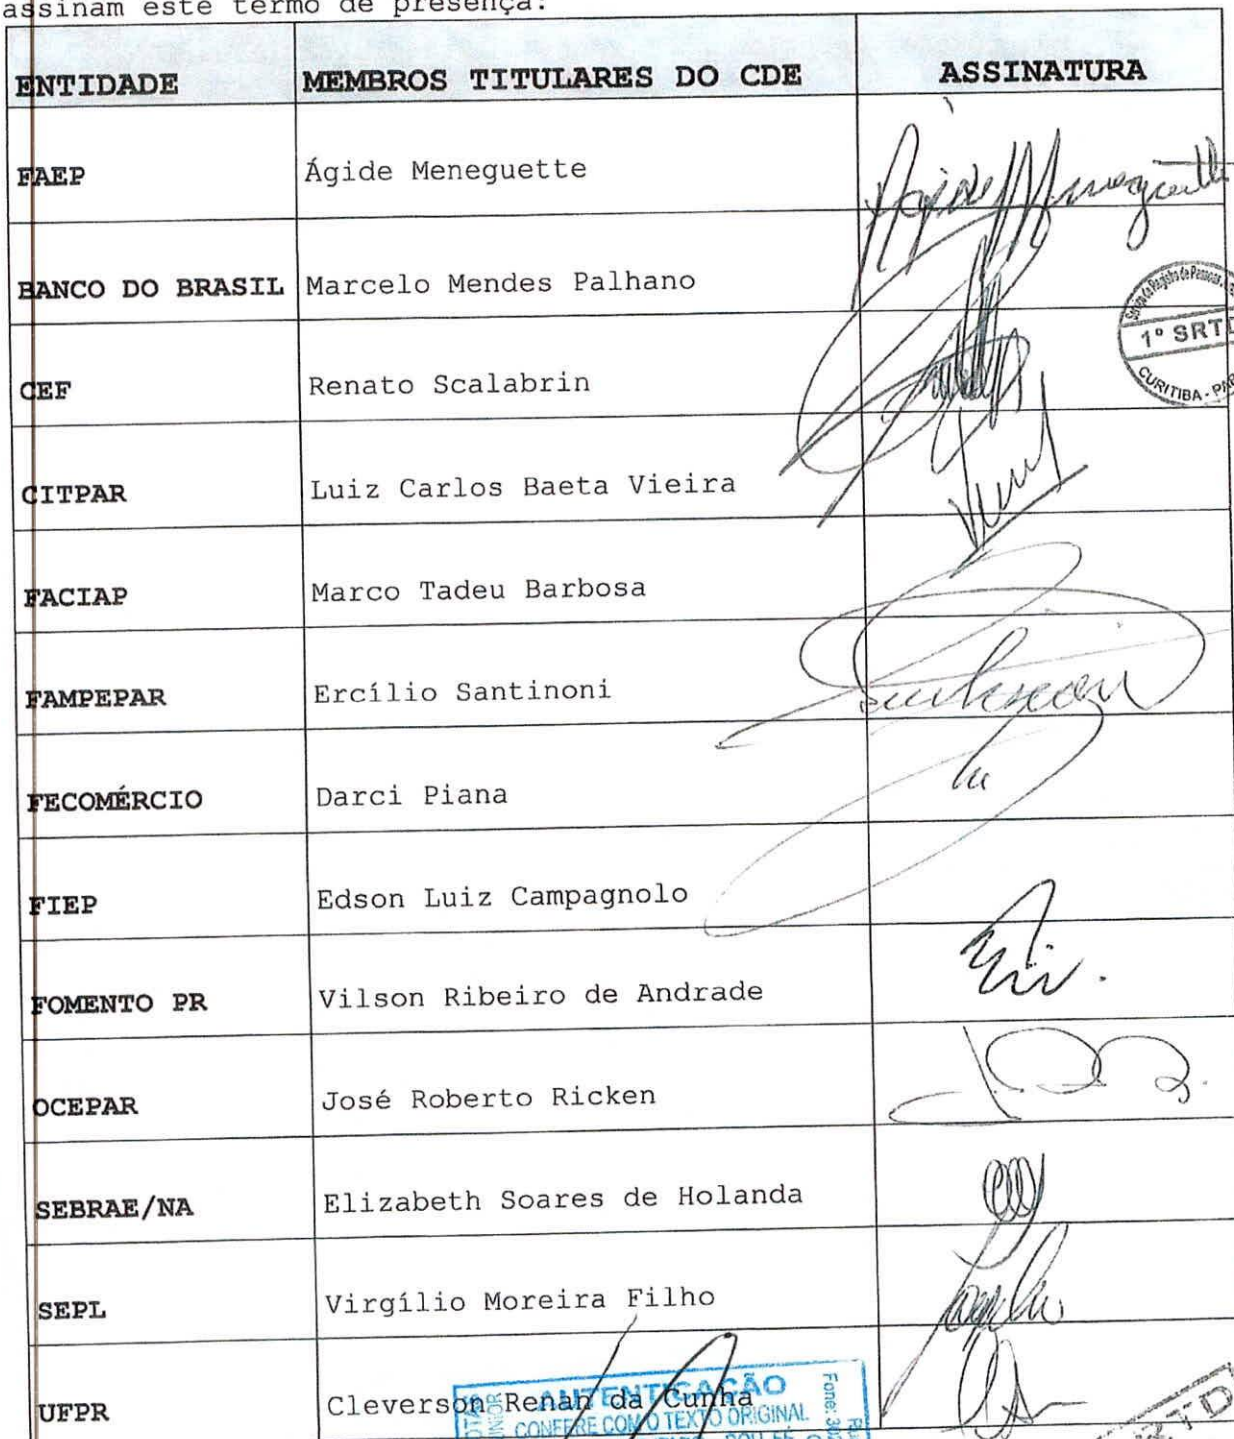 assinam este termo de presença:
ENTIDADE MEMBROS TITULARES DO CDE ASSINATURA
FAEP Ágide Meneguette
BANCO DO BRASIL Marcelo Mendes Palhano
1º SRTD
CURITIBA - PAR
CEF Renato Scalabrin
CITPAR Luiz Carlos Baeta Vieira
FACIAP Marco Tadeu Barbosa
FAMPEPAR Ercílio Santinoni
FECOMÉRCIO Darci Piana
FIEP Edson Luiz Campagnolo
FOMENTO PR Vilson Ribeiro de Andrade
OCEPAR José Roberto Ricken
SEBRAE/NA Elizabeth Soares de Holanda
SEPL Virgílio Moreira Filho
UFPR Cleverson Renan da Cunha
AUTENTICAÇÃO
CONFERE COM O TEXTO ORIGINAL
DOU FÉ
Fone: